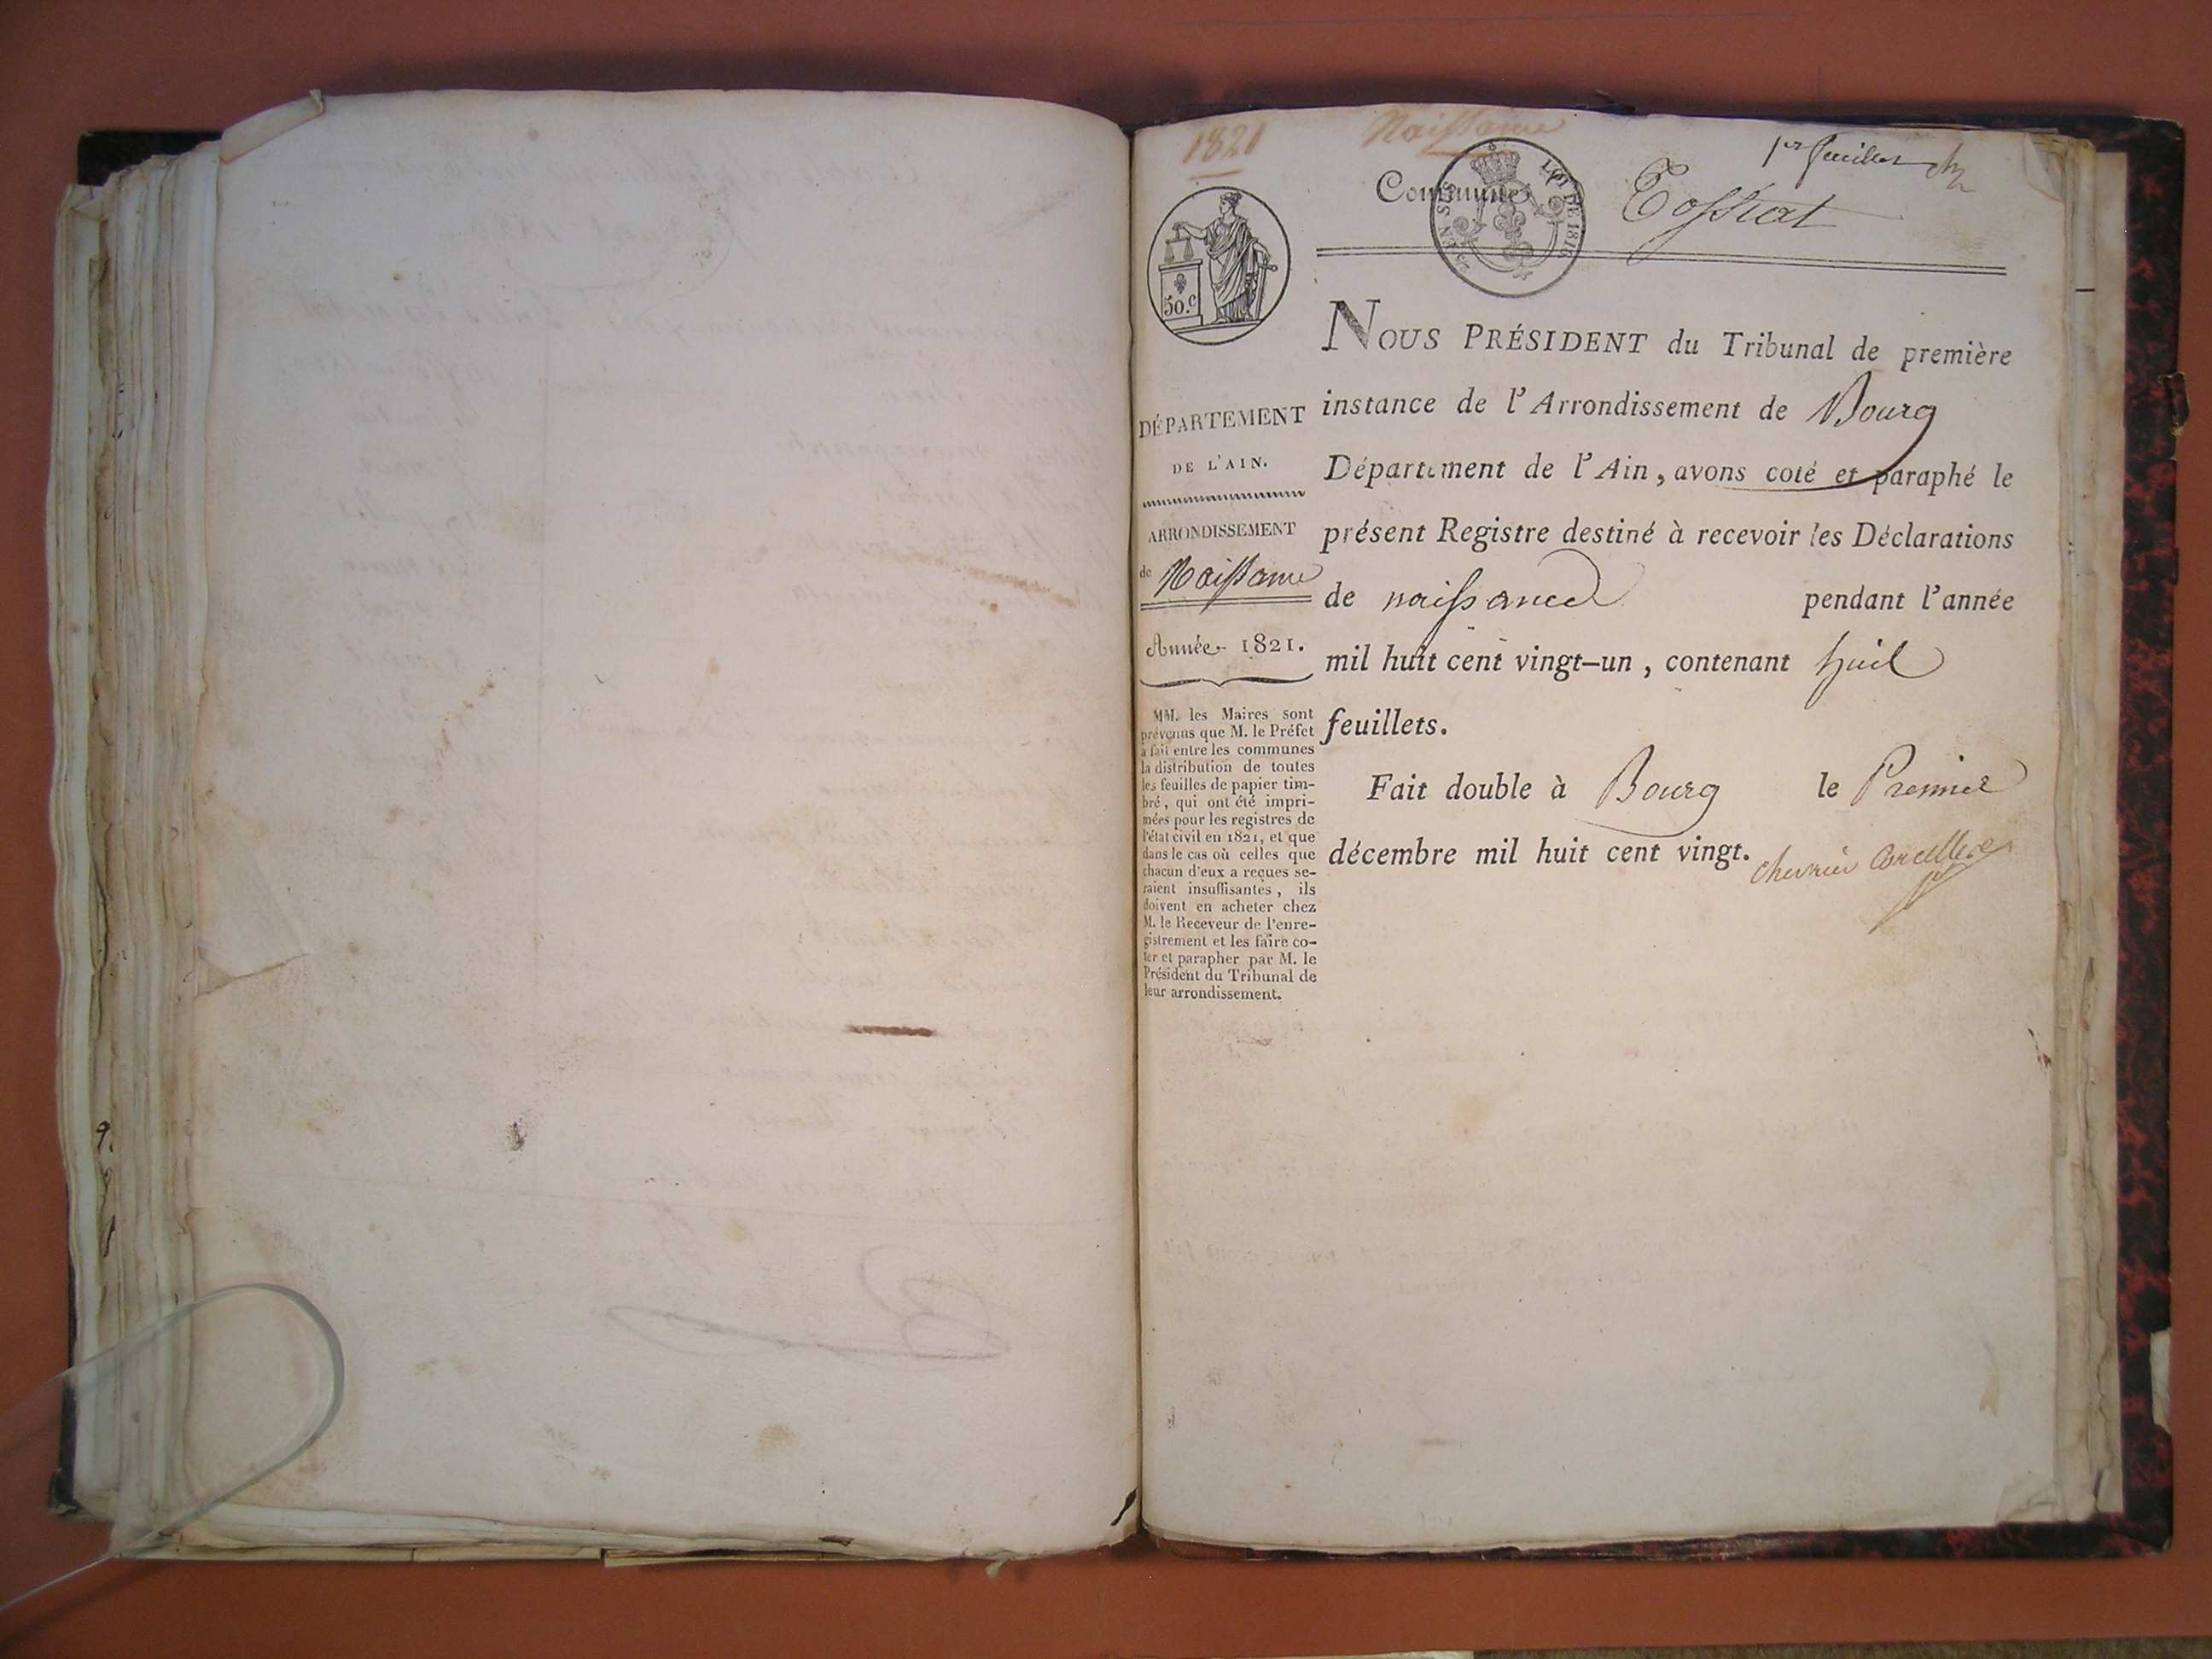 1821
Naissance
1er feuillet
Commune
Tossiat
LOI DE 1816
50.c
NOUS PRÉSIDENT du Tribunal de première
instance de l'Arrondissement de Bourg
Département de l'Ain, avons coté et paraphé le
présent Registre destiné à recevoir les Déclarations
de naissance pendant l'année
mil huit cent vingt-un, contenant huit
feuillets.
Fait double à Bourg le Premier
décembre mil huit cent vingt.
chevrier Corcelles
DÉPARTEMENT
DE L'AIN.
ARRONDISSEMENT
de Naissance
Année 1821.
MM. les Maires sont
prévenus que M. le Préfet
a fait entre les communes
la distribution de toutes
les feuilles de papier tim-
bré, qui ont été impri-
mées pour les registres de
l'état civil en 1821, et que
dans le cas où celles que
chacun d'eux a reçues se-
raient insuffisantes, ils
doivent en acheter chez
M. le Receveur de l'enre-
gistrement et les faire co-
ter et parapher par M. le
Président du Tribunal de
leur arrondissement.